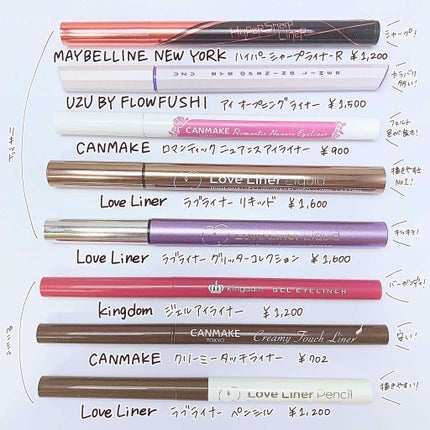 HyperSharp Liner
シャープ!
MAYBELLINE NEW YORK ハイパーシャープライナーR ¥1,200
UZU EYE OPENING LINER
カラバリ多い!
UZU BY FLOWFUSHI アイオープニングライナー ¥1,500
CANMAKE Romantic Nuance Eyeliner
CANMAKE ロマンティックニュアンスアイライナー ¥900
Love Liner Liquid
描きやすさNo.1!
Love Liner ラブライナー リキッド ¥1,600
Love Liner Liquid
キラキラ!
Love Liner ラブライナー グリッターコレクション ¥1,600
kingdom GEL EYELINER
バーガンディ!
kingdom ジェルアイライナー ¥1,200
CANMAKE TOKYO Creamy Touch Liner
安い!
CANMAKE クリーミータッチライナー ¥702
Love Liner Pencil
描きやすい!
Love Liner ラブライナー ペンシル ¥1,200